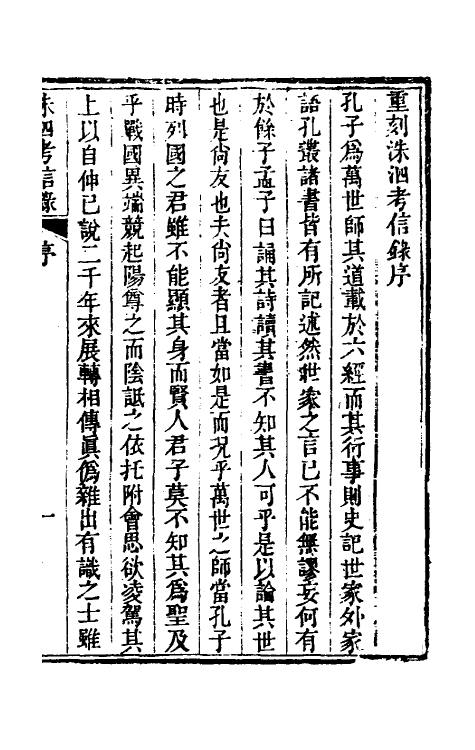 重刻洙泗考信錄序
孔子爲萬世師其道載於六經而其行事則史記世家外家
語孔叢諸書皆有所記述然世家之言已不能無謬妄何有
於餘子孟子曰誦其詩讀其書不知其人可乎是以論其世
也是尚友也夫尚友者且當如是而況乎萬世之師當孔子
時列國之君雖不能顯其身而賢人君子莫不知其爲聖及
乎戰國異端競起陽尊之而陰詆之依托附會思欲凌駕其
上以自伸已說二千年來展轉相傳眞僞雜出有識之士雖
洙泗考信錄 序 一